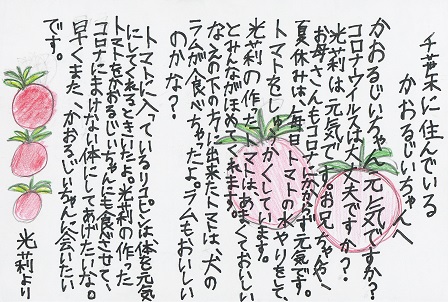 千葉県に住んでいる
かおるじいちゃんへ
かおるじいちゃん元気ですか?
コロナウイルスは大丈夫ですか?
光莉は、元気です。お兄ちゃんや、
お母さんもコロナにかからず元気です。
夏休みは、毎日トマトの水やりをして、
トマトをしゅうかくしています。
光莉の作ったトマトはあまくておいしい
とみんながほめてくれます。
なえの下の方に出来たトマトは、犬の
ラムが食べちゃったよ。ラムもおいしい
のかな?
トマトに入っているリコピンは体を元気
にしてくれるときいたよ。光莉の作った
トマトをかおるじいちゃんにも食べさせて、
コロナにまけない体にしてあげたいな。
早くまた、かおるじいちゃんに会いたい
です。
光莉より